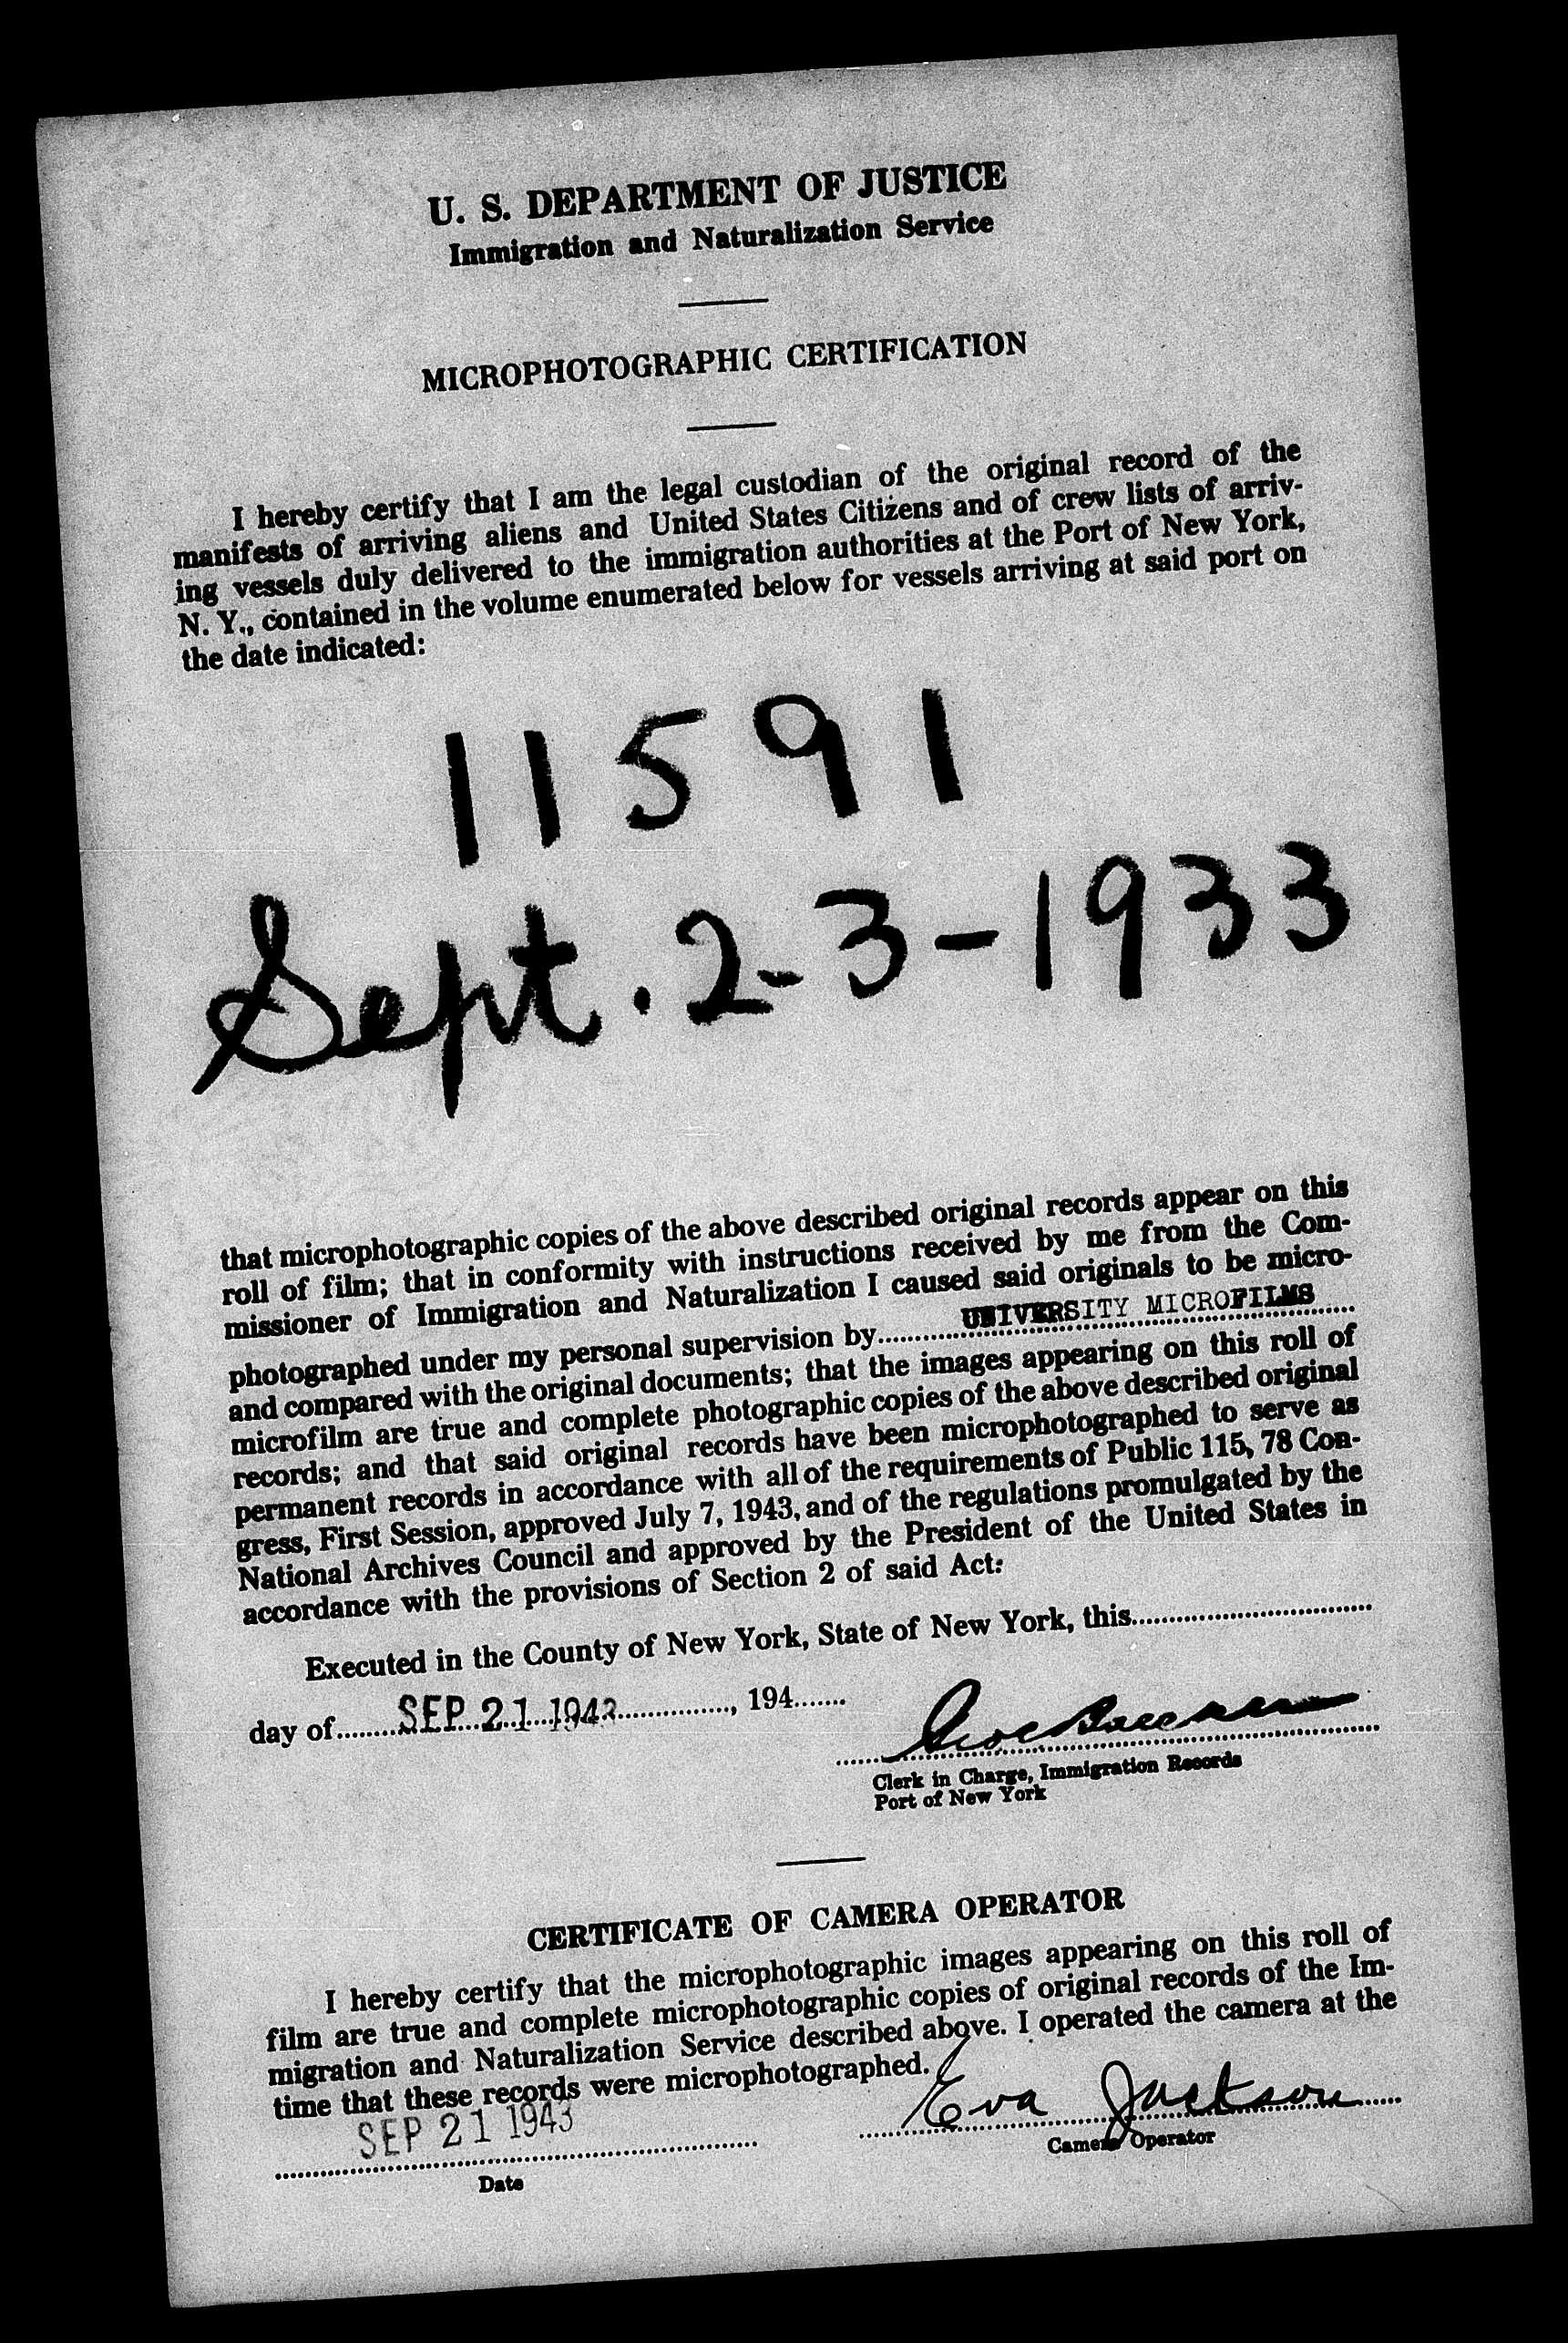 U. S. DEPARTMENT OF JUSTICE
Immigration and Naturalization Service
MICROPHOTOGRAPHIC CERTIFICATION
I hereby certify that I am the legal custodian of the original record of the
manifests of arriving aliens and United States Citizens and of crew lists of arriv-
ing vessels duly delivered to the immigration authorities at the Port of New York,
N. Y., contained in the volume enumerated below for vessels arriving at said port on
the date indicated:
11591
Sept. 2-3-1933
that microphotographic copies of the above described original records appear on this
roll of film; that in conformity with instructions received by me from the Com-
missioner of Immigration and Naturalization I caused said originals to be micro-
photographed under my personal supervision by UNIVERSITY MICROFILMS
and compared with the original documents; that the images appearing on this roll of
microfilm are true and complete photographic copies of the above described original
records; and that said original records have been microphotographed to serve as
permanent records in accordance with all of the requirements of Public 115, 78 Con-
gress, First Session, approved July 7, 1943, and of the regulations promulgated by the
National Archives Council and approved by the President of the United States in
accordance with the provisions of Section 2 of said Act:
Executed in the County of New York, State of New York, this
day of SEP 21 1943, 194
Clerk in Charge, Immigration Records
Port of New York
CERTIFICATE OF CAMERA OPERATOR
I hereby certify that the microphotographic images appearing on this roll of
film are true and complete microphotographic copies of original records of the Im-
migration and Naturalization Service described above. I operated the camera at the
time that these records were microphotographed.
SEP 21 1943
Eva Jackson
Date
Camera Operator